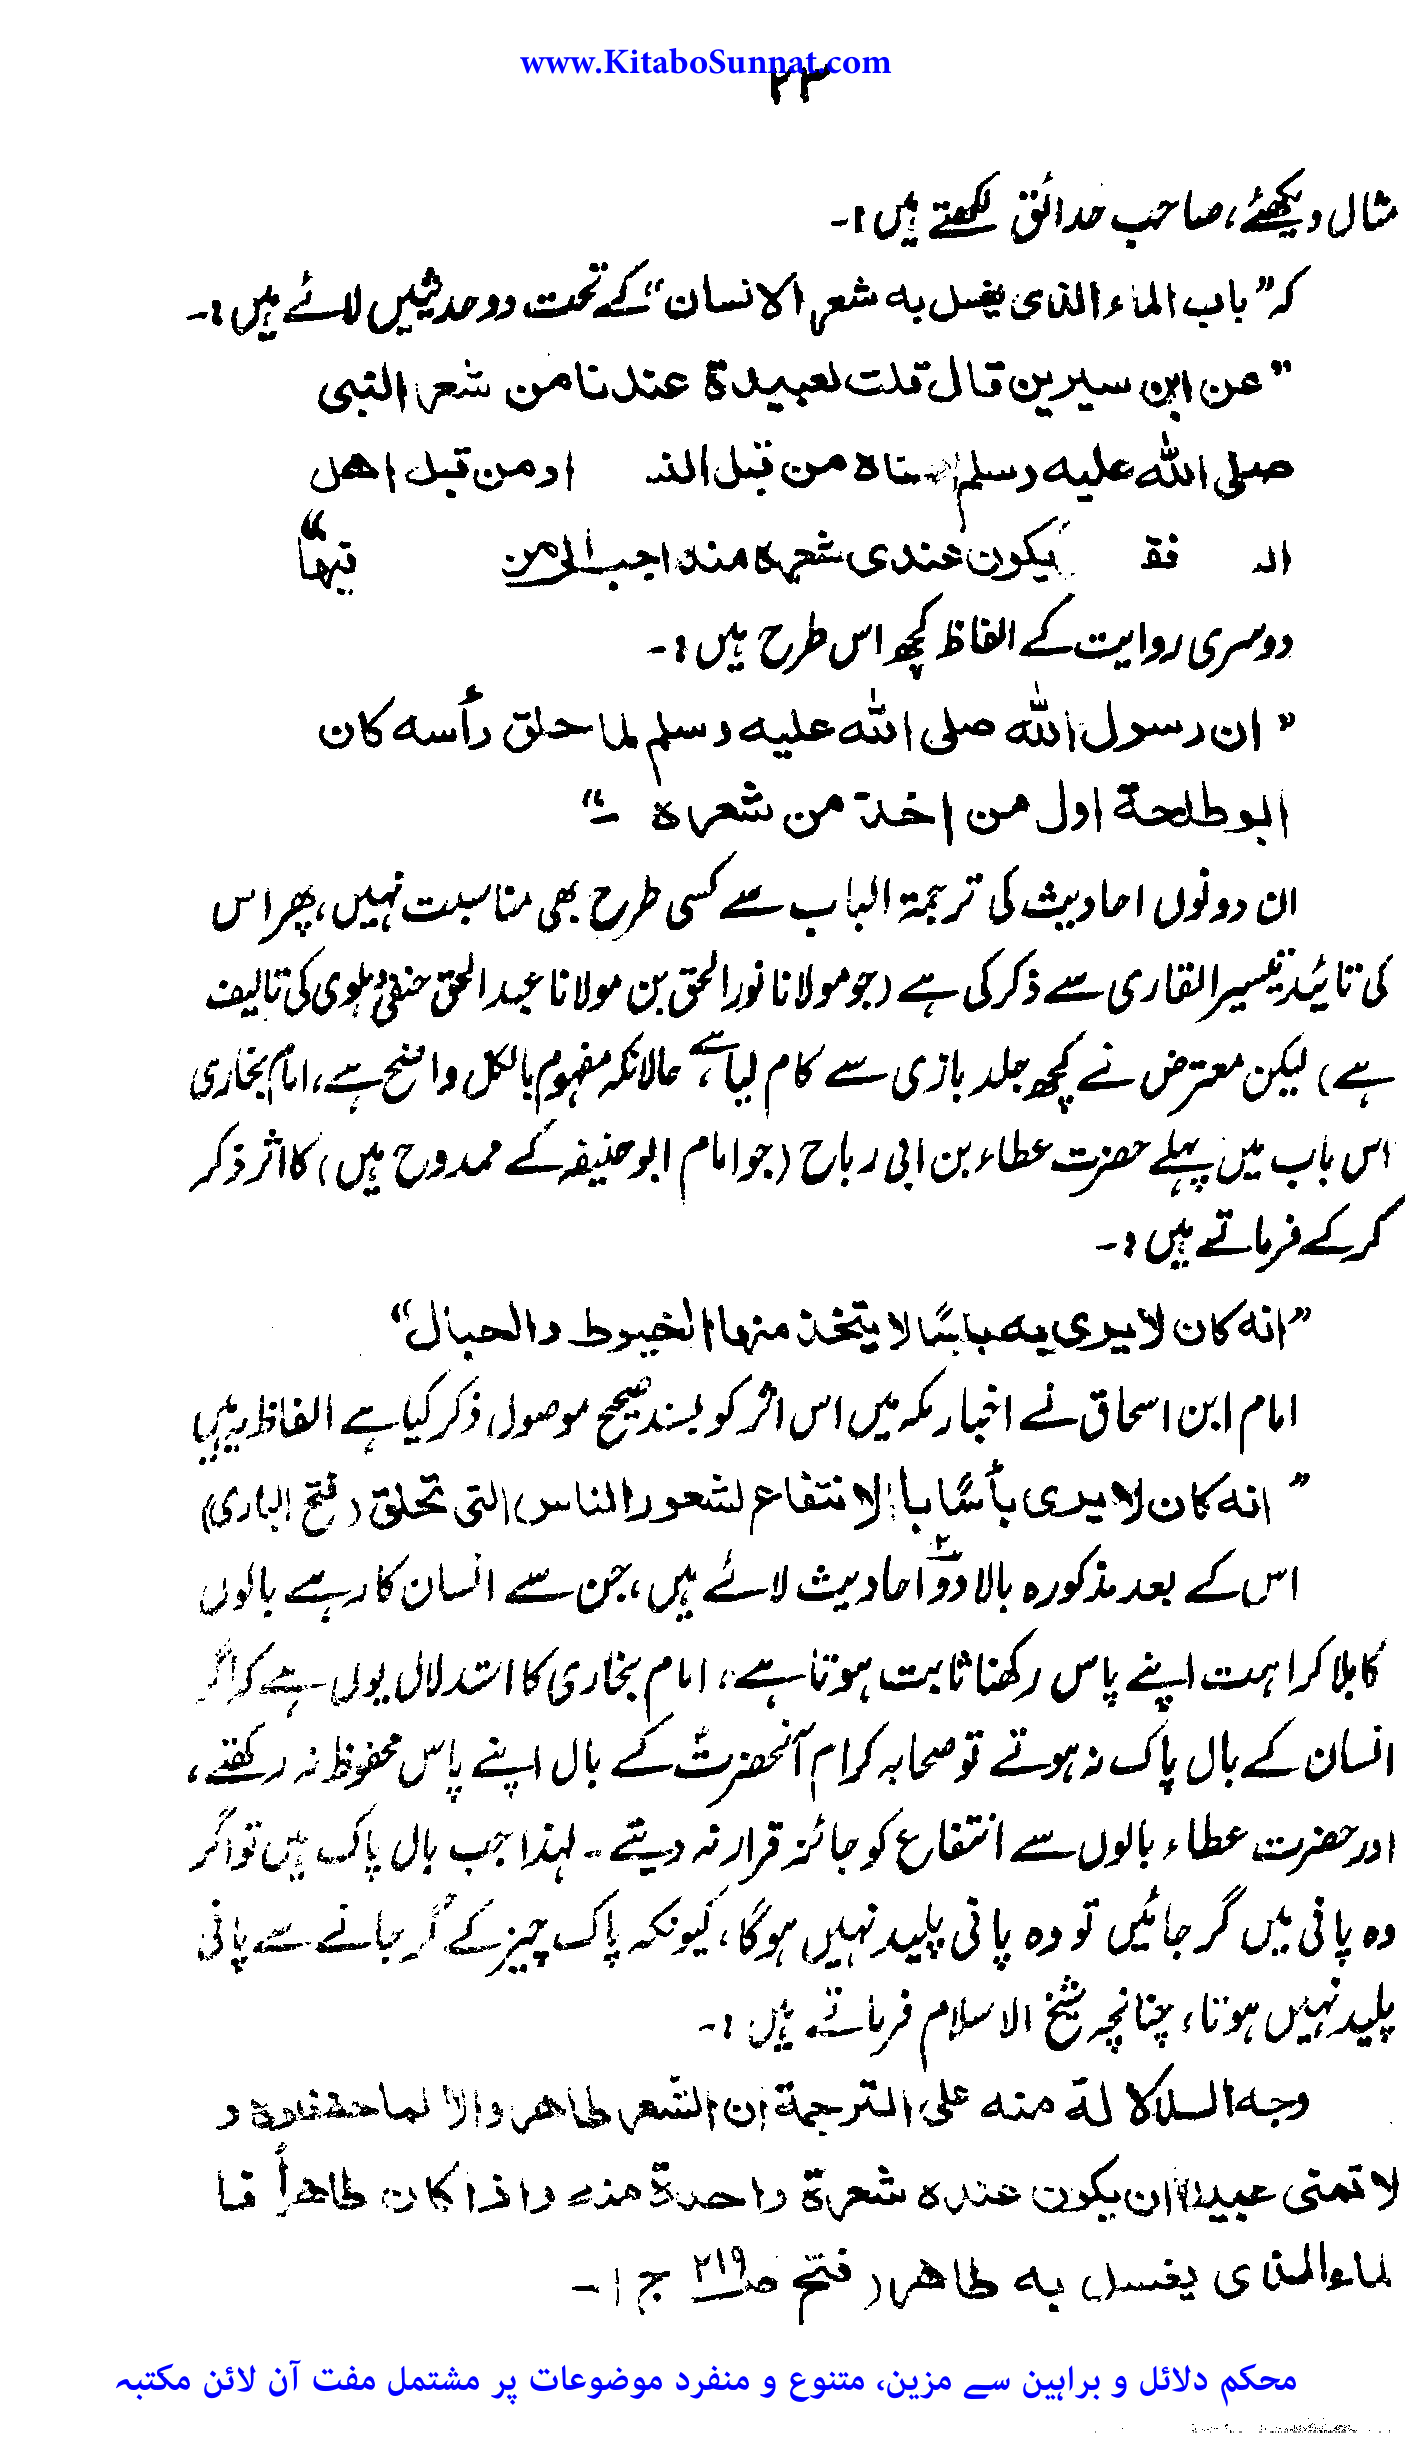 www.KitaboSunnat.com
۲۳
مثال دیکھئے، صاحب حدائق لکھتے ہیں :۔
کہ ”باب الماء الذی یغسل بہ شعر الانسان“ کے تحت دو حدیثیں لائے ہیں :۔
”عن ابن سیرین قال قلت لعبیدۃ عندنا من شعر النبی
صلی اللہ علیہ وسلم اصبناہ من قبل او من قبل اھل
یکون عندی شعرہ منہ احب الی من فیھا“
دوسری روایت کے الفاظ کچھ اس طرح ہیں :۔
”ان رسول اللہ صلی اللہ علیہ وسلم لما حلق رأسہ کان
ابو طلحۃ اول من اخذ من شعرہ ۔“
ان دونوں احادیث کی ترجمۃ الباب سے کسی طرح بھی مناسبت نہیں، پھر اس
کی تائید تیسیر القاری سے ذکر کی ہے (جو مولانا نور الحق بن مولانا عبد الحق حنفی دہلوی کی تالیف
ہے) لیکن معترض نے کچھ جلد بازی سے کام لیا ہے، حالانکہ مفہوم بالکل واضح ہے، امام بخاری
اس باب میں پہلے حضرت عطاء بن ابی رباح (جو امام ابو حنیفہ کے ممدوح ہیں) کا اثر ذکر
کر کے فرماتے ہیں :۔
”انہ کان لا یری بہ باسًا لا یتخذ منھا الخیوط والحبال“
امام ابن اسحاق نے اخبار مکہ میں اس اثر کو بسند صحیح موصول ذکر کیا ہے الفاظ یہ ہیں
”انہ کان لا یری بأسًا با الانتفاع لشعور الناس التی تحلق (فتح الباری)
اس کے بعد مذکورہ بالا دو۲ احادیث لائے ہیں، جن سے انسان کا رہے بالوں
کا بلا کراہت اپنے پاس رکھنا ثابت ہوتا ہے، امام بخاری کا استدلال یوں ہے کہ اگر
انسان کے بال پاک نہ ہوتے تو صحابہ کرام آنحضرتؐ کے بال اپنے پاس محفوظ نہ رکھتے،
اور حضرت عطاء بالوں سے انتفاع کو جائز قرار نہ دیتے ۔ لہذا جب بال پاک ہیں تو اگر
وہ پانی میں گر جائیں تو وہ پانی پلید نہیں ہوگا، کیونکہ پاک چیز کے گر جانے سے پانی
پلید نہیں ہوتا، چنانچہ شیخ الاسلام فرماتے ہیں :۔
وجہ الدلالۃ منہ علی الترجمۃ ان الشعر طاھر والا لما حفظوہ و
لا تمنی عبیدۃ ان یکون عندہ شعرۃ واحدۃ منہ واذا کان طاھراً فا
لماء الذی یغسل بہ طاھر (فتح صـ ۲۱۹ ج ۱ ۔
محکم دلائل و براہین سے مزین، متنوع و منفرد موضوعات پر مشتمل مفت آن لائن مکتبہ